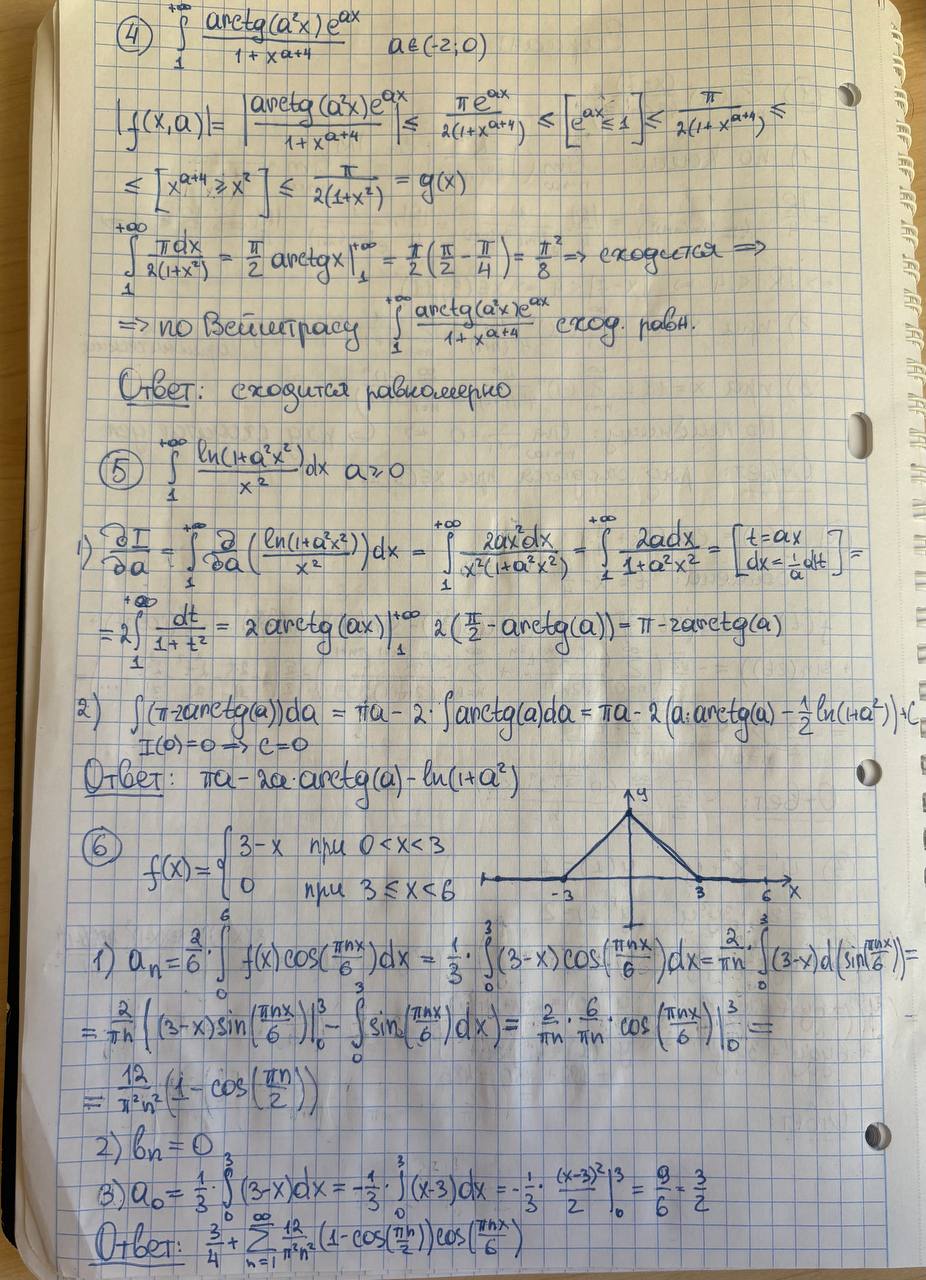 ④ ∫₁^{+∞} arctg(a²x)e^{ax} / (1+x^{a+4}) a∈(-2;0)
|f(x,a)| = |arctg(a²x)e^{ax} / (1+x^{a+4})| ≤ πe^{ax} / 2(1+x^{a+4}) ≤ [e^{ax} ≤ 1] ≤ π / 2(1+x^{a+4}) ≤
≤ [x^{a+4} ≥ x²] ≤ π / 2(1+x²) = g(x)
∫₁^{+∞} πdx / 2(1+x²) = π/2 arctgx |₁^{+∞} = π/2 (π/2 - π/4) = π²/8 ⇒ сходится ⇒
⇒ по Вейштрасу ∫₁^{+∞} arctg(a²x)e^{ax} / (1+x^{a+4}) сход. равн.
Ответ: сходится равномерно
⑤ ∫₁^{+∞} ln(1+a²x²) / x² dx a≥0
1) ∂I/∂a = ∫₁^{+∞} ∂/∂a (ln(1+a²x²) / x²) dx = ∫₁^{+∞} 2ax²dx / x²(1+a²x²) = ∫₁^{+∞} 2adx / (1+a²x²) = [t=ax dx=1/a dt] =
= 2∫₁^{+∞} dt / (1+t²) = 2arctg(ax) |₁^{+∞} 2(π/2 - arctg(a)) = π-2arctg(a)
2) ∫(π-2arctg(a))da = πa - 2·∫arctg(a)da = πa - 2(a·arctg(a) - 1/2 ln(1+a²)) + C
I(0)=0 ⇒ C=0
Ответ: πa - 2a·arctg(a) - ln(1+a²)
⑥ f(x) = { 3-x при 0<x<3
0 при 3≤x<6
y
-3 3 6 x
1) aₙ = 2/6 · ∫₀⁶ f(x)cos(πnx/6)dx = 1/3 · ∫₀³ (3-x)cos(πnx/6)dx = 2/πn · ∫₀³ (3-x)d(sin(πnx/6)) =
= 2/πn ((3-x)sin(πnx/6) |₀³ - ∫₀³ sin(πnx/6)dx) = 2/πn · 6/πn · cos(πnx/6) |₀³ =
= 12/π²n² (1 - cos(πn/2))
2) bₙ = 0
3) a₀ = 1/3 · ∫₀³ (3-x)dx = -1/3 · ∫₀³ (x-3)dx = -1/3 · (x-3)²/2 |₀³ = 9/6 = 3/2
Ответ: 3/4 + ∑ₙ₌₁^∞ 12/π²n² (1-cos(πn/2))cos(πnx/6)